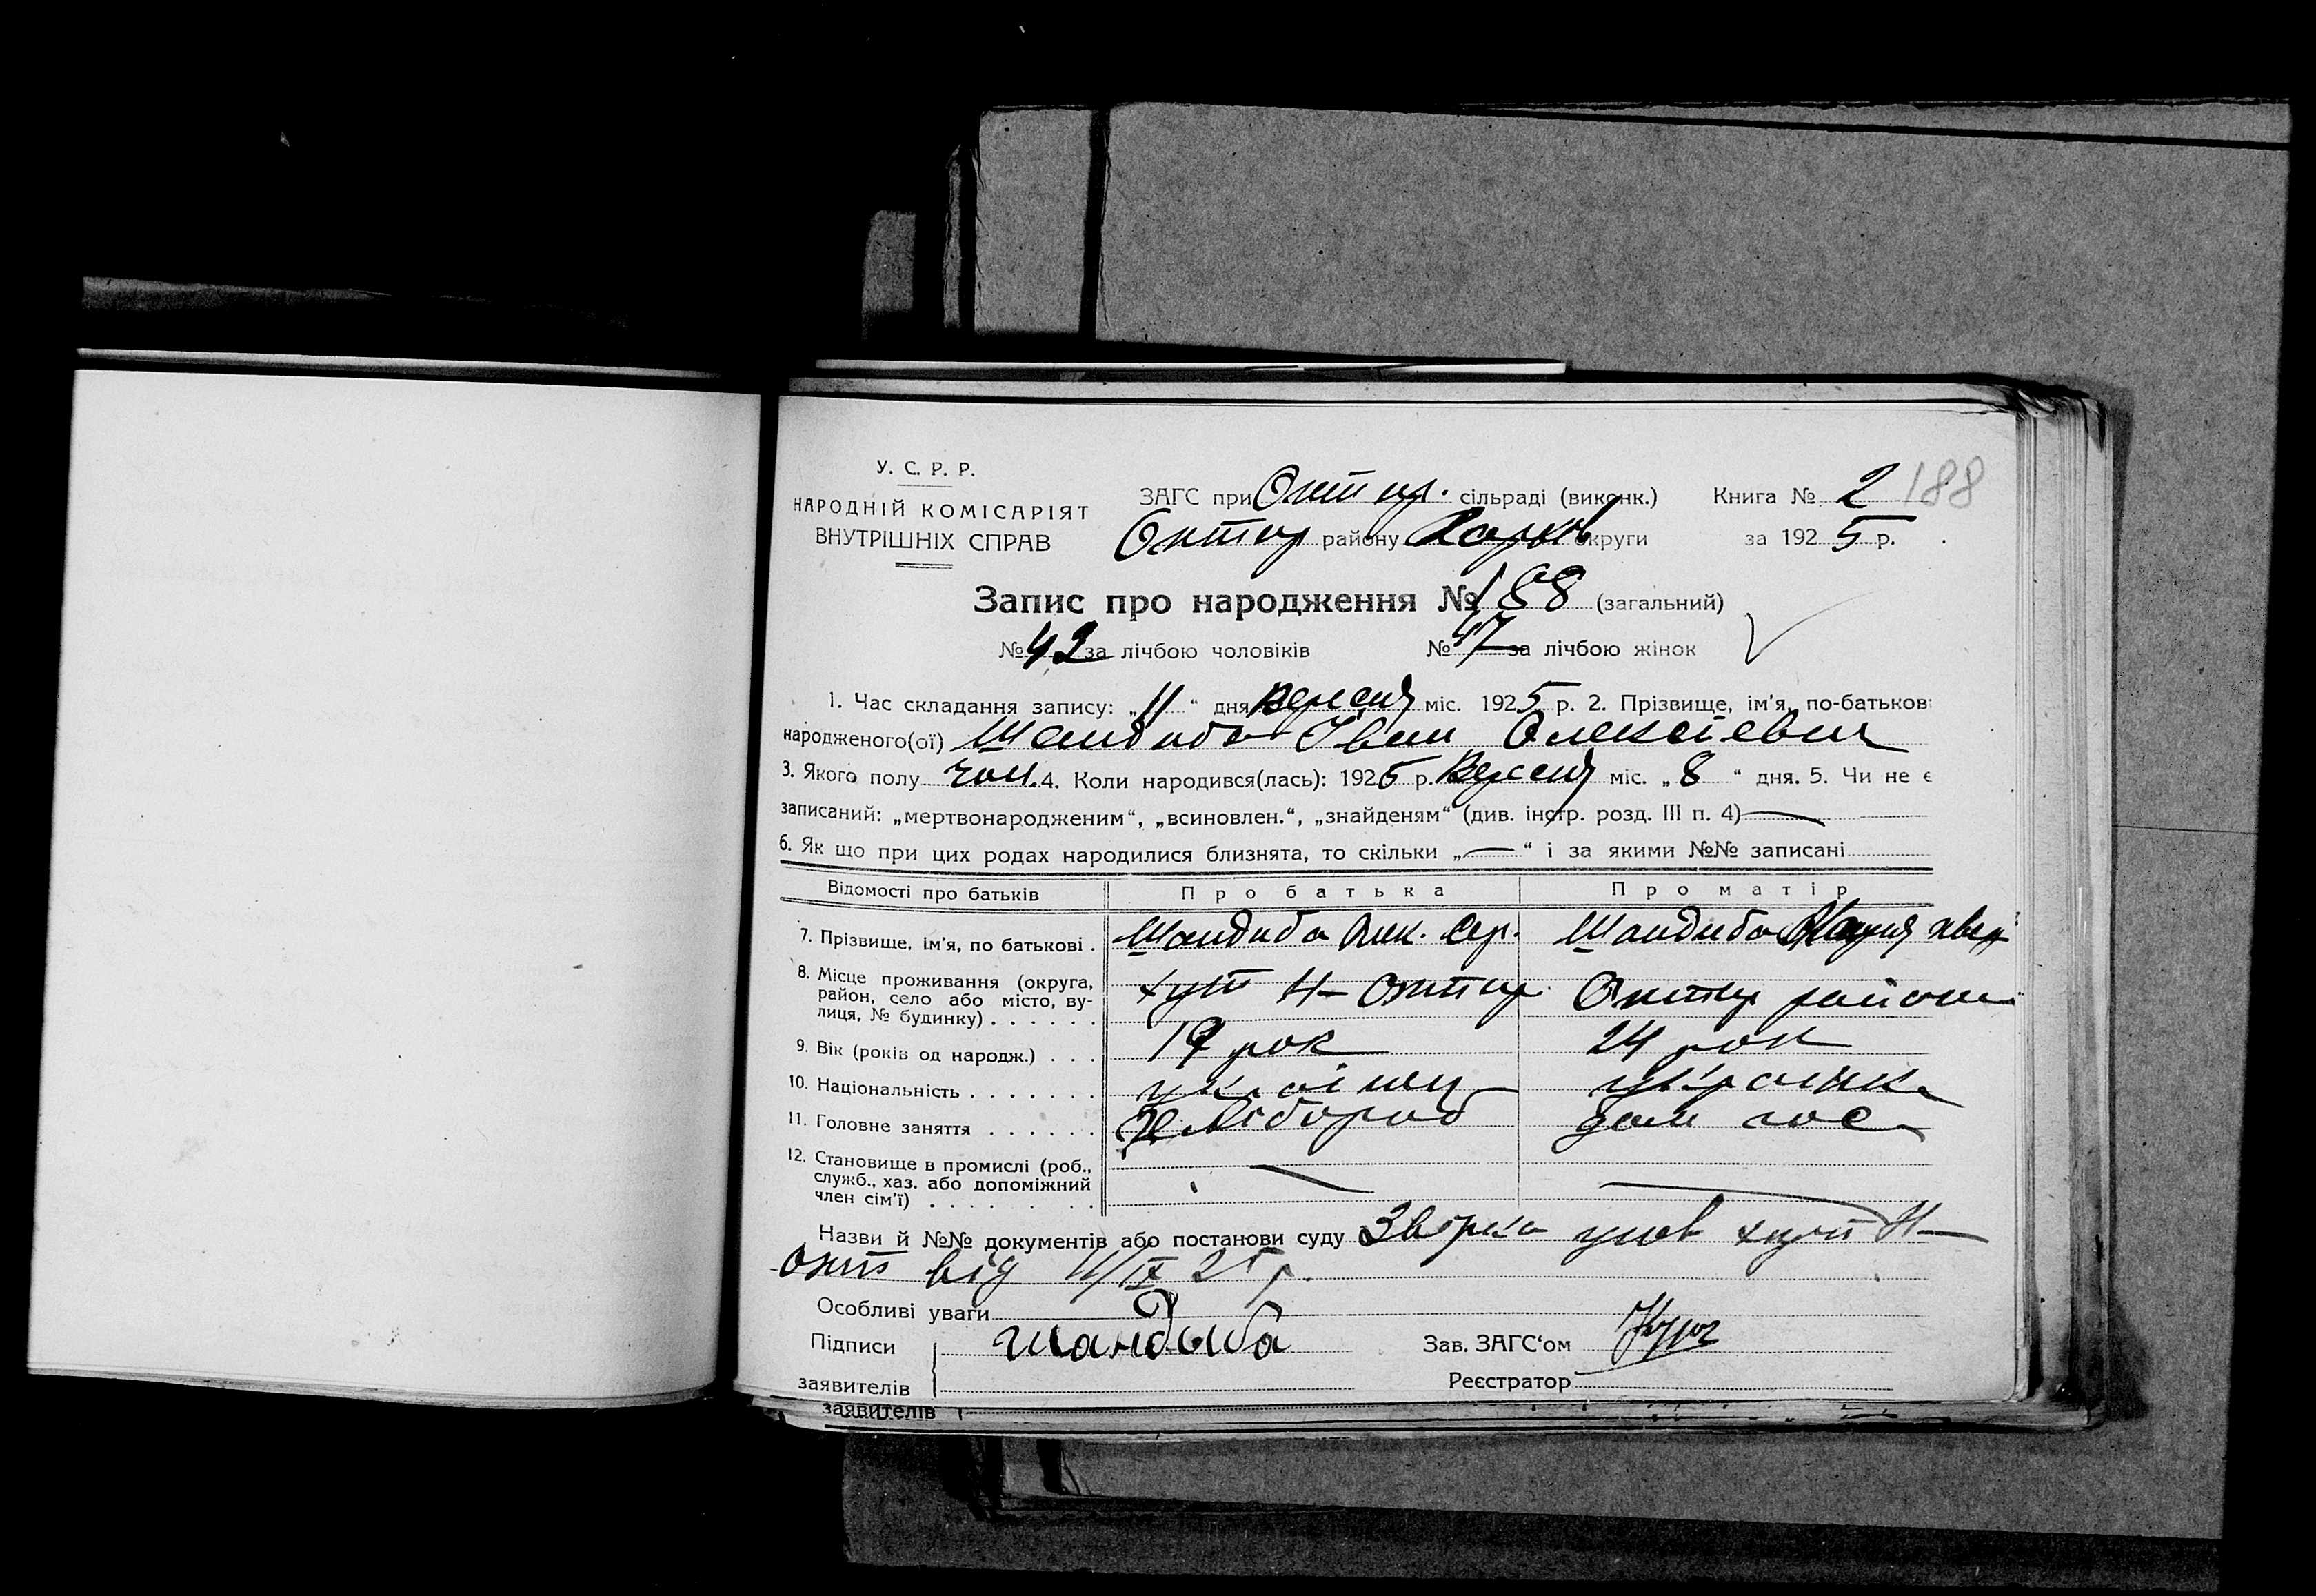 У. С. Р. Р.
НАРОДНІЙ КОМІСАРІЯТ
ВНУТРІШНІХ СПРАВ
ЗАГС при сільраді (виконк.) Книга № 2 188
району Харків округи за 1925 р.
Запис про народження № 188 (загальний)
№ 42 за лічбою чоловіків № 47 за лічбою жінок
1. Час складання запису: „11“ дня Вересня міс. 1925 р. 2. Прізвище, ім’я, по-батькові
народженого(ої) Шандиба Іван Олексієвич
3. Якого полу чол. 4. Коли народився(лась): 1925 р. Вересня міс. „8“ дня. 5. Чи не є
записаний: „мертвонародженим“, „всиновлен.“, „знайденям“ (див. інстр. розд. III п. 4) —
6. Як що при цих родах народилися близнята, то скільки „—“ і за якими №№ записані
Відомості про батьків Про батька Про матір
7. Прізвище, ім’я, по батькові . Шандиба Олек. Сер. Шандиба Марія
8. Місце проживання (округа,
район, село або місто, ву-
лиця, № будинку) . . . . . . хут Н-
9. Вік (років од народж.) . . . 19 рок 24 рок
10. Національність . . . . . . . українець українка
11. Головне заняття . . . . . . Хлібороб дом гос
12. Становище в промислі (роб.,
служб., хаз. або допоміжний
член сім’ї) . . . . . . . . — —
Назви й №№ документів або постанови суду хут Н-
від 11/IX 25 р.
Особливі уваги
Підписи Шандыба Зав. ЗАГС‘ом
заявителів Реєстратор
заявителів